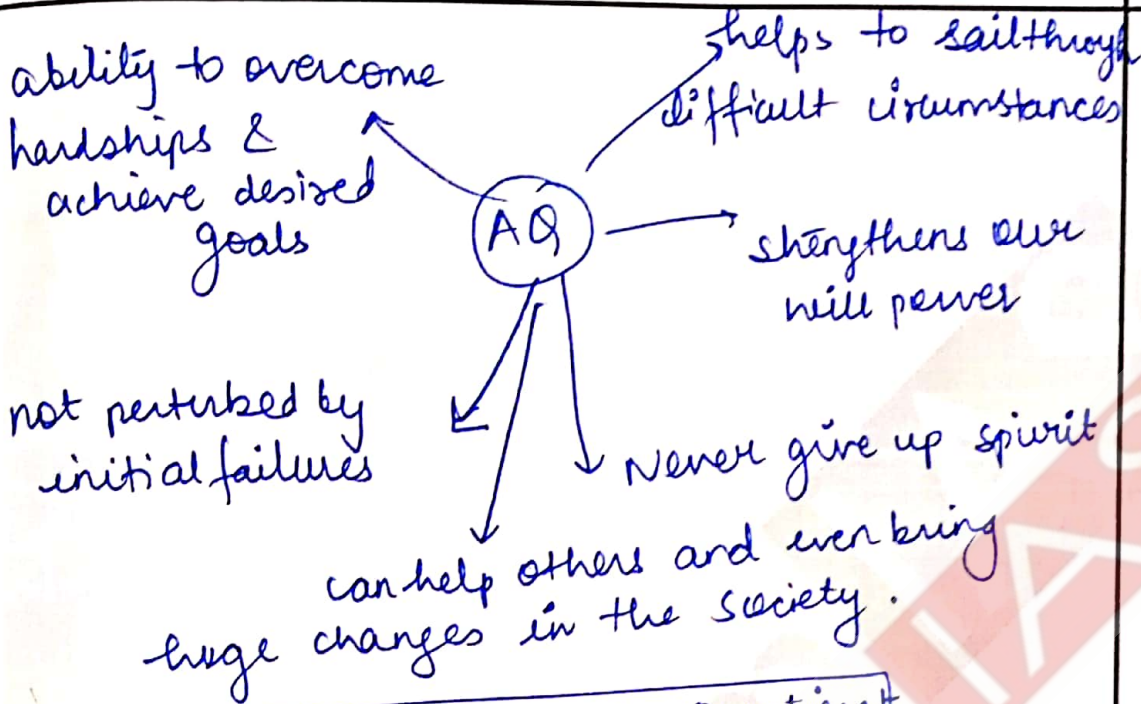 ability to overcome
hardships &
achieve desired
goals
helps to sailthrough
difficult circumstances
AQ
strengthens our
will power
not perturbed by
initial failures
Never give up spirit
can help others and even bring
huge changes in the society.
IAS